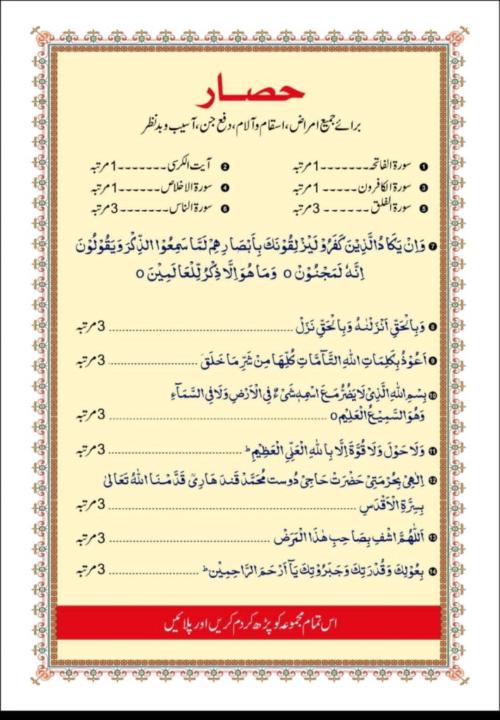 حصار
برائے جمیع امراض، اسقام و آلام، دفع جن، آسیب و بد نظر
1 سورۃ الفاتحہ-------1مرتبہ 2 آیت الکرسی-------1مرتبہ
3 سورۃ الکافرون-----1مرتبہ 4 سورۃ الاخلاص------1مرتبہ
5 سورۃ الفلق------3مرتبہ 6 سورۃ الناس-------3مرتبہ
7 وَاِنْ يَكَادُ الَّذِيْنَ كَفَرُوْ لَيُزْلِقُوْنَكَ بِاَبْصَارِهِمْ لَمَّا سَمِعُوْا الذِّكْرَ وَيَقُوْلُوْنَ
اِنَّهٗ لَمَجْنُوْنْ o وَمَا هُوَ اِلَّا ذِكْرُ لِّلْعَالَمِيْنَ o
8 وَبِالْحَقِّ اَنْزَلْنٰهُ وَبِالْحَقِّ نَزَلْ ........ 3مرتبہ
9 اَعُوْذُ بِكَلِمَاتِ اللّٰهِ التَّآمَّاتِ كُلِّهَا مِنْ شَرِّ مَا خَلَقَ ........ 3مرتبہ
10 بِسْمِ اللّٰهِ الَّذِيْ لَا يَضُرُّ مَعَ اسْمِهٖ شَيْءٌ فِي الْاَرْضِ وَلَا فِي السَّمَآءِ
وَهُوَ السَّمِيْعُ الْعَلِيْمِ o ........ 3مرتبہ
11 وَلَا حَوْلَ وَلَا قُوَّةَ اِلَّا بِاللّٰهِ الْعَلِيِّ الْعَظِيْمِ ط ........ 3مرتبہ
12 اِلٰهِيْ بِحُرْمَتِيْ حَضْرَتْ حَاجِيْ دُوست مُحَمَّدْ قَندهَارِيْ قَدَّ مْنَا اللّٰهُ تَعَالٰى
بِسِرَّةِ الْاَقْدَسِ ........ 3مرتبہ
13 اَللّٰهُمَّ اشْفِ بِصَاحِبِ هٰذَا الْمَرَضْ ........ 3مرتبہ
14 بِعُوْلِكَ وَقُدْرَتِكَ وَجَبَرُوْتِكَ يَآ اَرْحَمَ الرَّاحِمِيْنَ ط ........ 3مرتبہ
اس تمام مجموعہ کو پڑھ کر دم کریں اور پلائیں